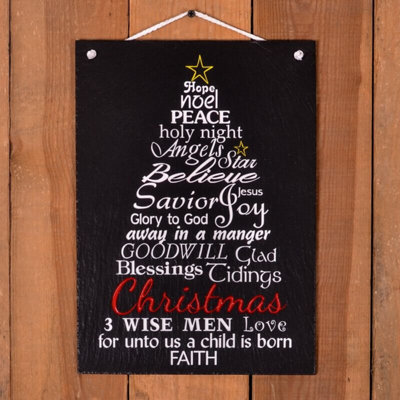 Hope
noel
PEACE
holy night
Angels Star
Believe
Savior Jesus
Joy
Glory to God
away in a manger
GOODWILL Glad
Blessings Tidings
Christmas
3 WISE MEN Love
for unto us a child is born
FAITH